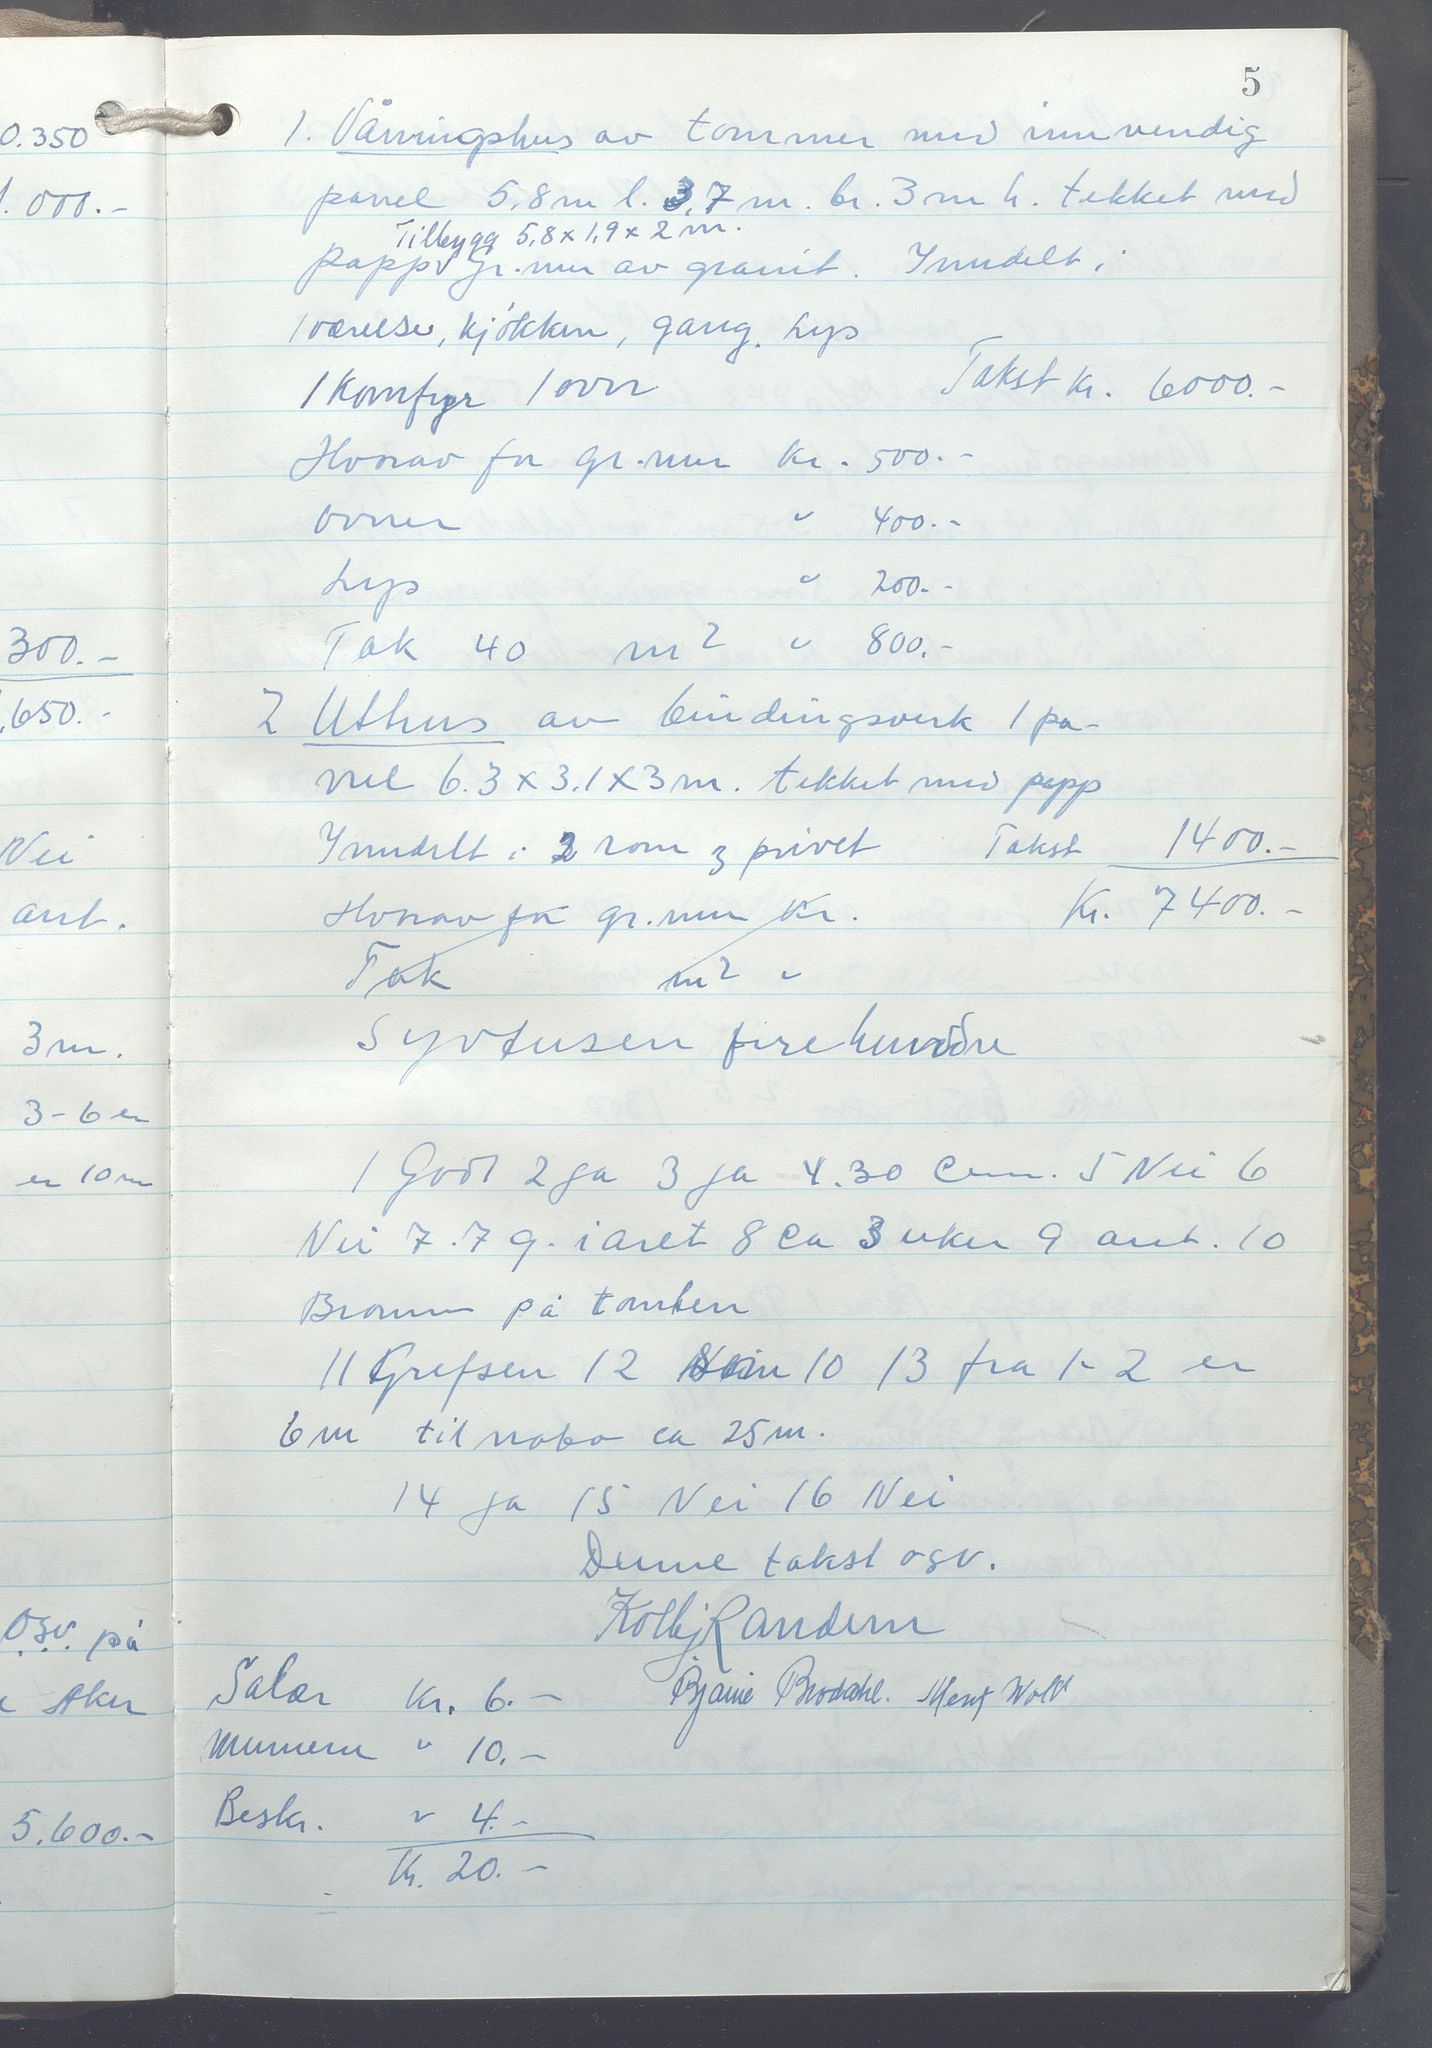 0.350
1.000.-
300.-
.650.-
Nei
ant.
3 m.
3-6 er
er 10 m
osv. på
Aker
5.600.-
5
1. Våningshus av tømmer med innvendig
panel 5,8 m l. 3,7 m. br. 3 m h. tekket med
Tilbygg 5,8 x 1,9 x 2 m.
papp v Gr.mur av granit. Inndelt i
1 værelse, kjøkken, gang. Lys
1 komfyr 1 ovn Takst Kr. 6000.-
Hvorav for gr.mur Kr. 500.-
ovner " 400.-
Lys " 200.-
Tak 40 m2 " 800.-
2 Uthus av bindingsverk 1 pa-
nel 6.3 x 3.1 x 3 m. tekket med papp
Inndelt i 2 rom og privet Takst 1400.-
Hvorav for gr.mur Kr. Kr. 7400.-
Tak m2 "
Syvtusen firehundre
1 Godt 2 ja 3 ja 4. 30 Cem. 5 Nei 6
Nei 7. 7 g. i året 8 Ca 3 uker 9 ant. 10
Brønn på tomten
11 Grefsen 12 10 13 fra 1-2 er
6 m til nabo ca 25 m.
14 ja 15 Nei 16 Nei
Denne takst osv.
Kolbj Randem
Salær Kr. 6.- Bjarne Brodahl. Wold
Mennene " 10.-
Beskr. " 4.-
Kr. 20.-